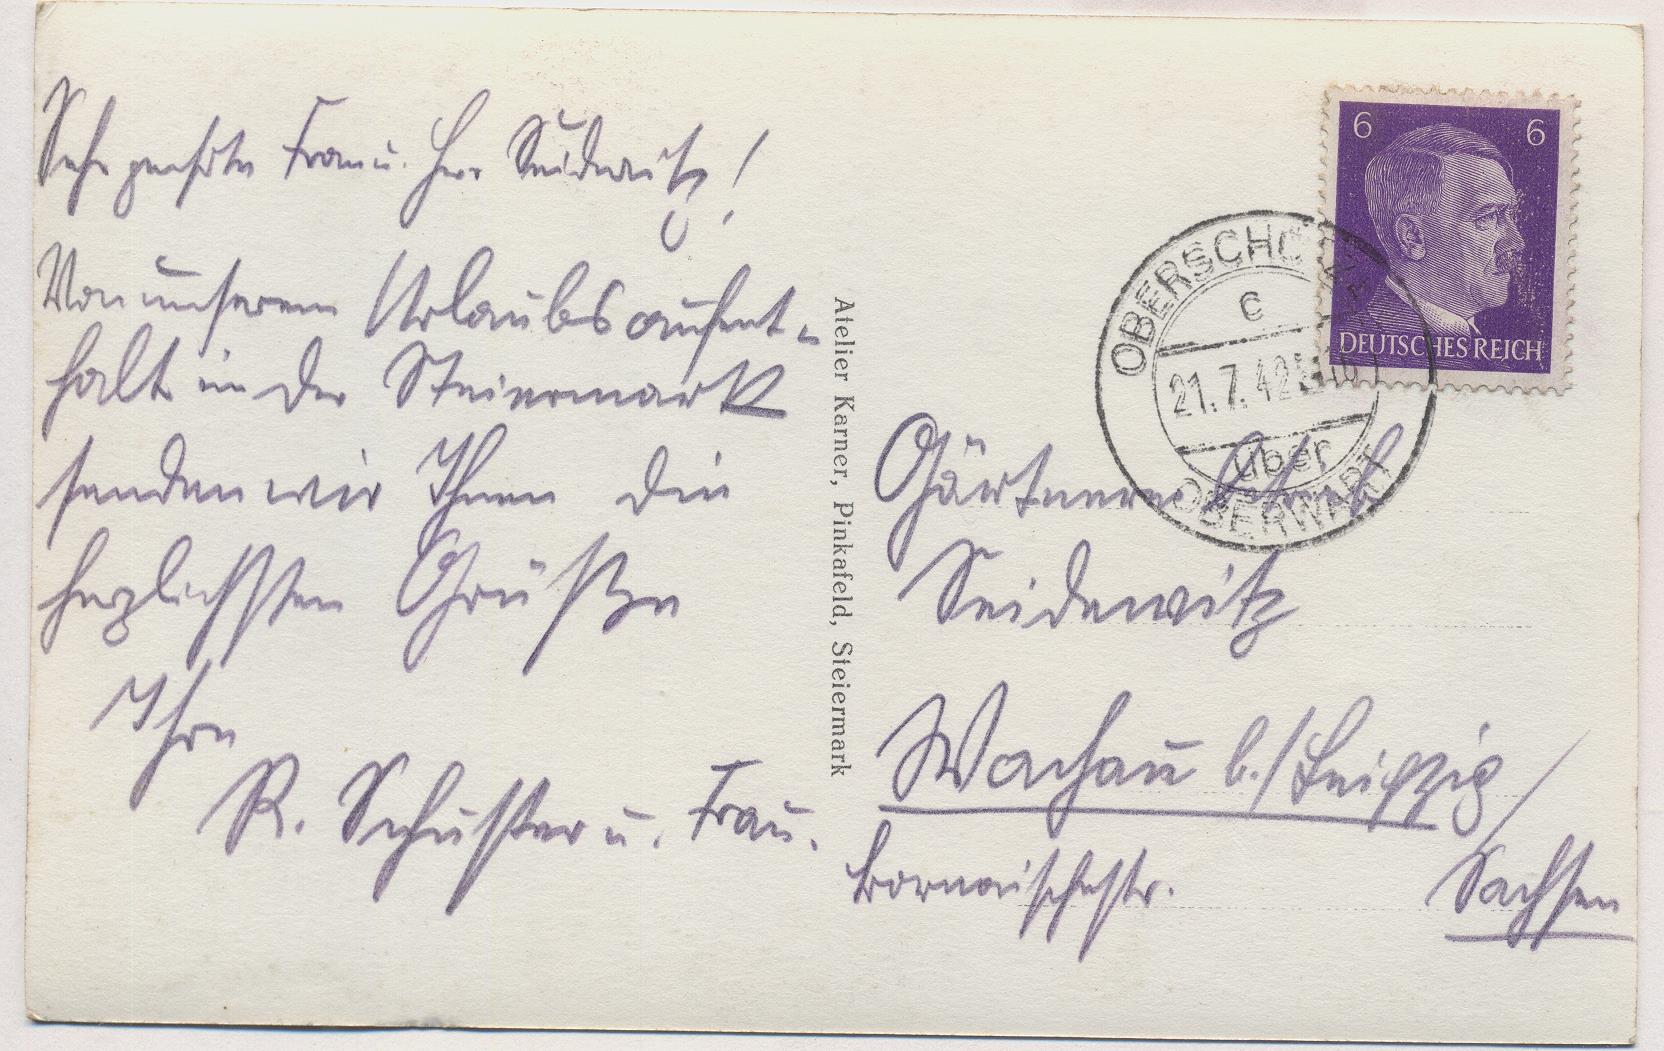 Sehr geehrte Frau u. Herr Seidewitz!
Von unserem Urlaubsaufent-
halt in der Steiermark
senden wir Ihnen die
herzlichsten Grüße
Ihre
R. Schuster u. Frau.
Atelier Karner, Pinkafeld, Steiermark
6 6
DEUTSCHES REICH
c
21.7.42
über
OBERWART
Gärtnereibetrieb
Seidewitz
Wachau b./Leipzig/
Bornaischestr.
Sachsen